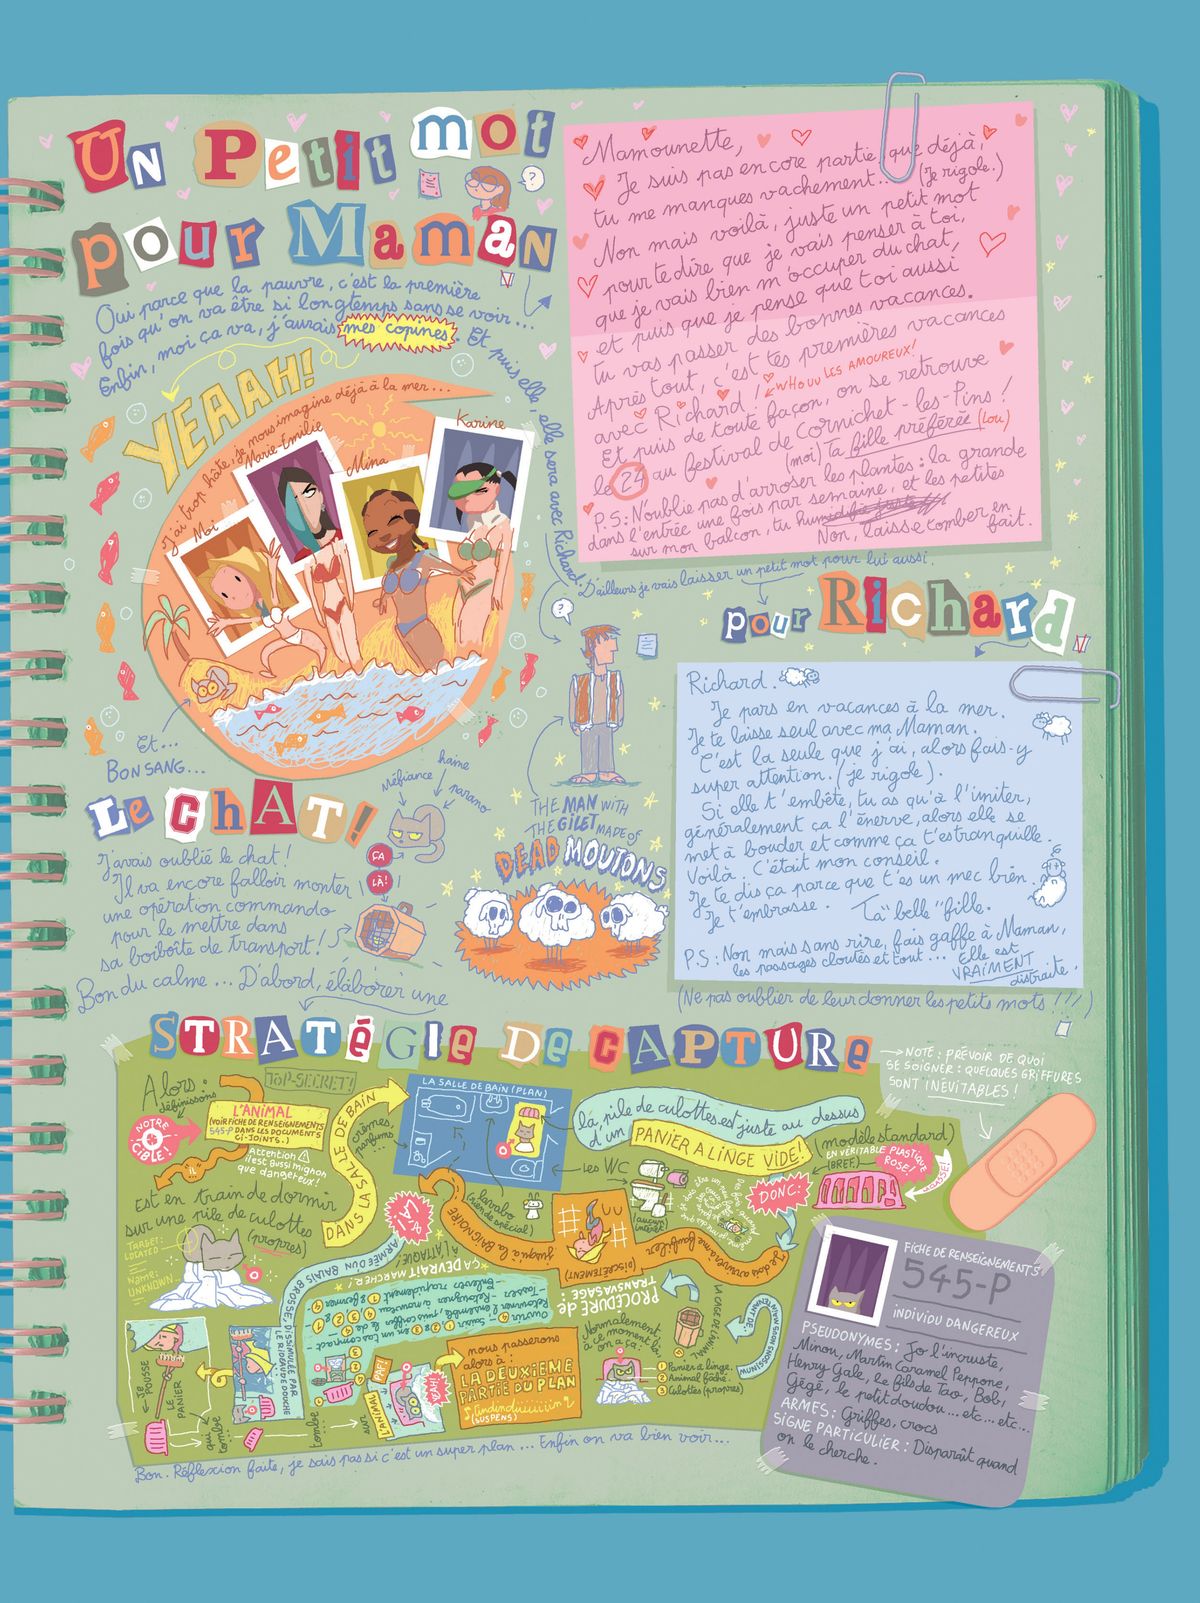 Un Petit mot
pour Maman
Oui parce que la pauvre, c'est la première
fois qu'on va être si longtemps sans se voir...
Enfin, moi ça va, j'aurais mes copines. Et puis elle, elle sera avec Richard.
YEAAH!
J'ai trop hâte, je nous imagine déjà à la mer...
Moi
Marie-Emilie
Mina
Karine
Mamounette,
Je suis pas encore partie que déjà,
tu me manques vachement... (Je rigole.)
Non mais voilà, juste un petit mot
pour te dire que je vais penser à toi,
que je vais bien m'occuper du chat,
et puis que je pense que toi aussi
tu vas passer des bonnes vacances.
Après tout, c'est tes premières vacances
avec Richard! WHOUU LES AMOUREUX!
Et puis de toute façon, on se retrouve
le 24 au festival de Cornichet-les-Pins!
(moi) Ta fille préférée (Lou)
P.S: N'oublie pas d'arroser les plantes: la grande
dans l'entrée une fois par semaine, et les petites
sur mon balcon, tu
Non, laisse tomber en fait.
D'ailleurs je vais laisser un petit mot pour lui aussi.
pour Richard
Richard.
Je pars en vacances à la mer.
Je te laisse seul avec ma Maman.
C'est la seule que j'ai, alors fais-y
super attention. (je rigole).
Si elle t'embête, tu as qu'à l'imiter,
généralement ça l'énerve, alors elle se
met à bouder et comme ça t'es tranquille.
Voilà. C'était mon conseil.
Je te dis ça parce que t'es un mec bien.
Je t'embrasse. Ta "belle" fille.
P.S: Non mais sans rire, fais gaffe à Maman,
les passages cloutés et tout... Elle est
VRAIMENT
distraite.
(Ne pas oublier de leur donner les petits mots!!!)
THE MAN WITH
THE GILET MADE OF
DEAD MOUTONS
Et...
BON SANG...
Le CHAT!
méfiance
haine
parano
J'avais oublié le chat!
Il va encore falloir monter
une opération commando
pour le mettre dans
sa boiboîte de transport!
ÇA
LÀ!
Bon du calme... D'abord, élaborer une
STRATÉGIE DE CAPTURE
NOTE: PRÉVOIR DE QUOI
SE SOIGNER: QUELQUES GRIFFURES
SONT INÉVITABLES!
TOP-SECRET!
Alors:
définissons
NOTRE
CIBLE!
L'ANIMAL
(VOIR FICHE DE RENSEIGNEMENTS
545-P DANS LES DOCUMENTS
CI-JOINTS.)
Attention
il est aussi mignon
que dangereux!
IL
EST en train de dormir
sur une pile de culottes
(propres)
TARGET:
LOCATED
Name:
UNKNOWN
DANS LA SALLE DE BAIN
LA SALLE DE BAIN (PLAN)
crèmes,
parfums...
lavabo
(rien de spécial)
LES WC
(aucun
intérêt)
là, pile de culottes est juste au dessus
d'un PANIER A LINGE VIDE!
(modèle standard)
EN VÉRITABLE PLASTIQUE
ROSE!
(BREF.)
DONC:
Je dois arriver à me faufiler
(DISCRÈTEMENT)
jusqu'à la BAIGNOIRE
ET LÀ!
A L'ATTAQUE!
ARMÉE D'UN BALAIS BROSSE, DISSIMULÉE PAR
LE RIDEAU DE DOUCHE
JE POUSSE
LE PANIER
qui
tombe
tombe
sur
L'ANIMAL
PAF!
nous passerons
alors à:
LA DEUXIÈME
PARTIE DU PLAN
(SUSPENS)
MAINTENANT,
MUNISSONS NOUS DE:
LA CAGE DE L'ANIMAL
PROCÉDURE de
TRANSVASAGE:
Normalement,
à ce moment là,
on a ça:
1 Panier à linge.
2 Animal fâché.
3 Culottes (propres)
ÇA DEVRAIT MARCHER!
Bon. Réflexion faite, je sais pas si c'est un super plan... Enfin on va bien voir...
FICHE DE RENSEIGNEMENTS
545-P
INDIVIDU DANGEREUX
PSEUDONYMES: Jo l'incruste,
Minou, Martin, Caramel, Peppone,
Henry Gale, le fils de Tao, Bob,
Gégé, le petit doudou... etc... etc...
ARMES: Griffes, crocs
SIGNE PARTICULIER: Disparaît quand
on le cherche.